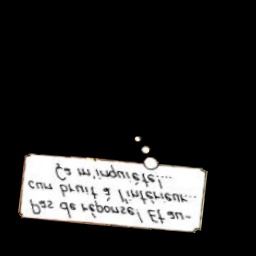 Pas de réponse! Et au-
cun bruit à l'intérieur...
Ça m'inquiète!...